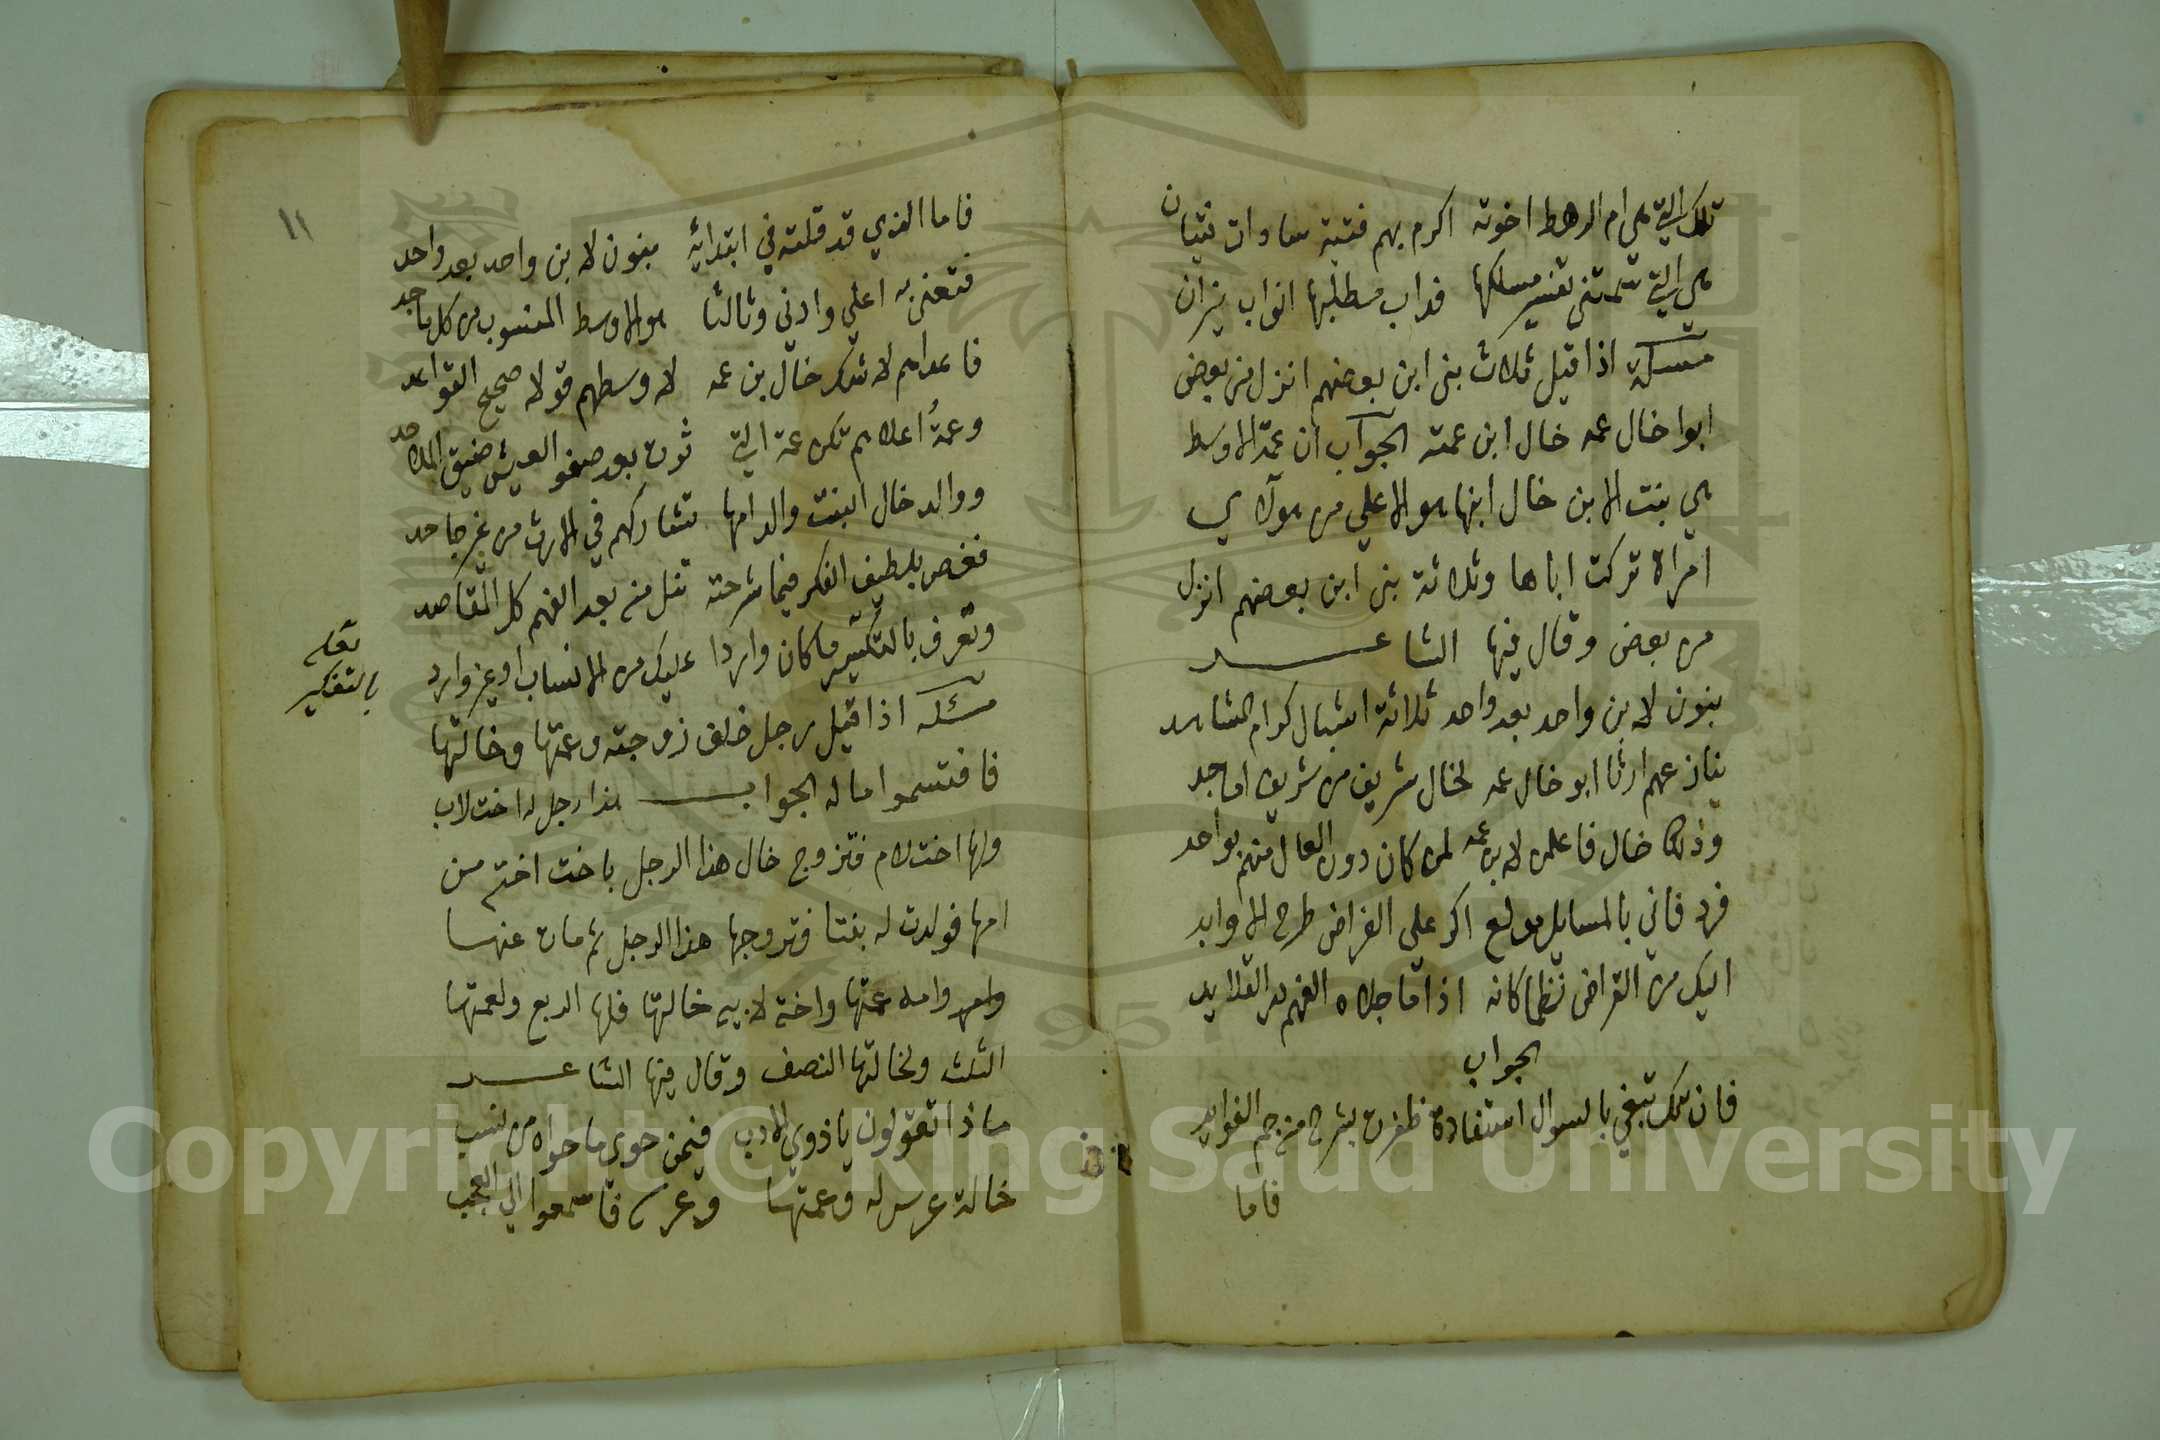 تلك التي هي ام الرهط اخوته اكرم بهم فتية سادات فتيان
هي التي تمتني تفسير مسلكها فداب مطلبها اثواب نيران
مسئلة اذا قيل ثلاث بني ابن بعضهم انزل من بعض
ابوا خال عمه خال ابن عمته الجواب ان عمة الاوسط
هي بنت الابن خال ابنها هو الاعلى من هولاي
امراة تركت اباها وثلاثة بني ابن بعضهم انزل
من بعض وقال فيها الشاعر
بنون لابن واحد بعد واحد ثلاثة اشبال كرام المشاهد
ينازعهم ارثا ابو خال عمه لخال شريف من شريف اماجد
وذلك خال فاعلمن لابن عمه لمن كان دون العال منهم بواحد
فرد فاني بالمسايل مولع اكر على الفراض طرح الاوابد
اليك من القراض نظما كانه اذا ما جلاه الفهم در القلايد
الجواب
فان تك تبغي بالسوال استفادة ظفرت بشرح من جم الفوايد
فاما
١١
فاما الذي قد قلته في ابتدايه بنون لابن واحد بعد واحد
فتعني به اعلي وادني وثالثا هو الاوسط المنسوب من كل ماجد
فاعلاهم لا شك خال بن عمه لاوسطهم قولا صحيح القواعد
وعمة اعلاهم تكن عمة التي ثوت بعد صفو العيش ضيق الملاحد
ووالد خال البنت والد امها تشاركهم في الارث من غير جاحد
فغص بلطيف الفكر فيما شرحته تنل منه بعد الفهم كل المقاصد
وتعرف بالتكسير ما كان واردا عليك من الانساب او غير وارد
بالتفكير
مسئلة اذا قيل رجل خلف زوجته وعمتها وخالتها
فاقتسموا ماله الجواب هذا رجل له اخت لاب
ولها اخت لام فتزوج خال هذا الرجل باخت اخته من
امها فولدت له بنتا فتزوجها هذا الرجل ثم مات عنها
وامه عمتها واخته لابيه خالتها فلها الربع ولعمتها
الثلث ولخالتها النصف وقال فيها الشاعر
ماذا تقولون يا ذوي الادب فيمن حوى ما حواه من نسب
خالة عرس له وعمتها وعرسه فاسمعوا الي العجب
Copyright © King Saud University
957